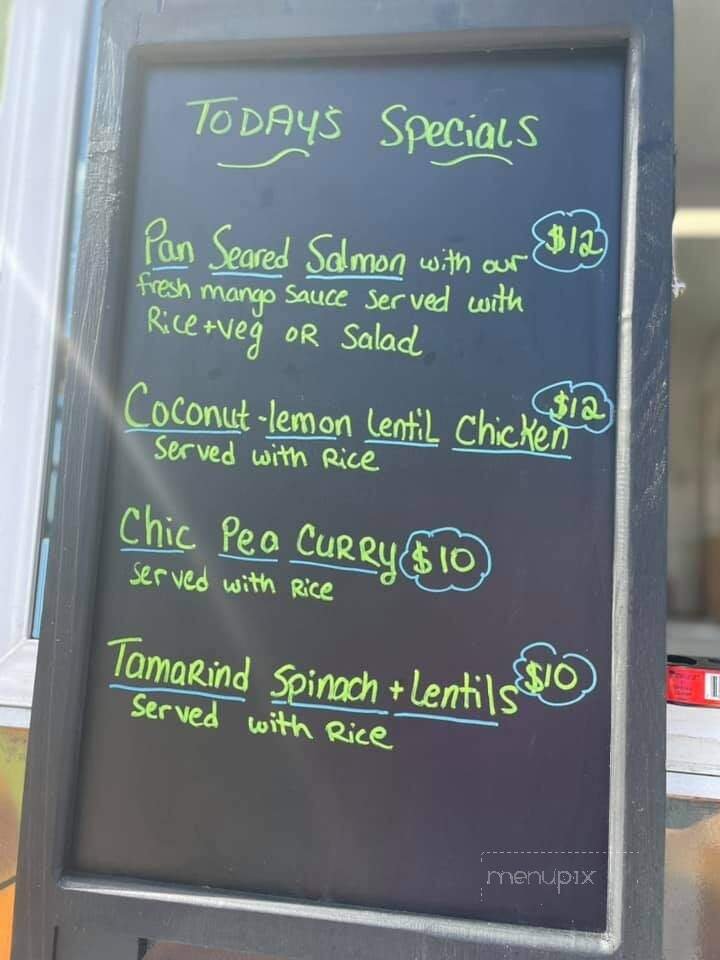 TODAY'S Specials
Pan Seared Salmon with our $12
fresh mango sauce served with
Rice + veg OR Salad
Coconut-lemon lentil Chicken $12
Served with Rice
Chic Pea CURRY $10
served with Rice
Tamarind Spinach + Lentils $10
served with Rice
menupix